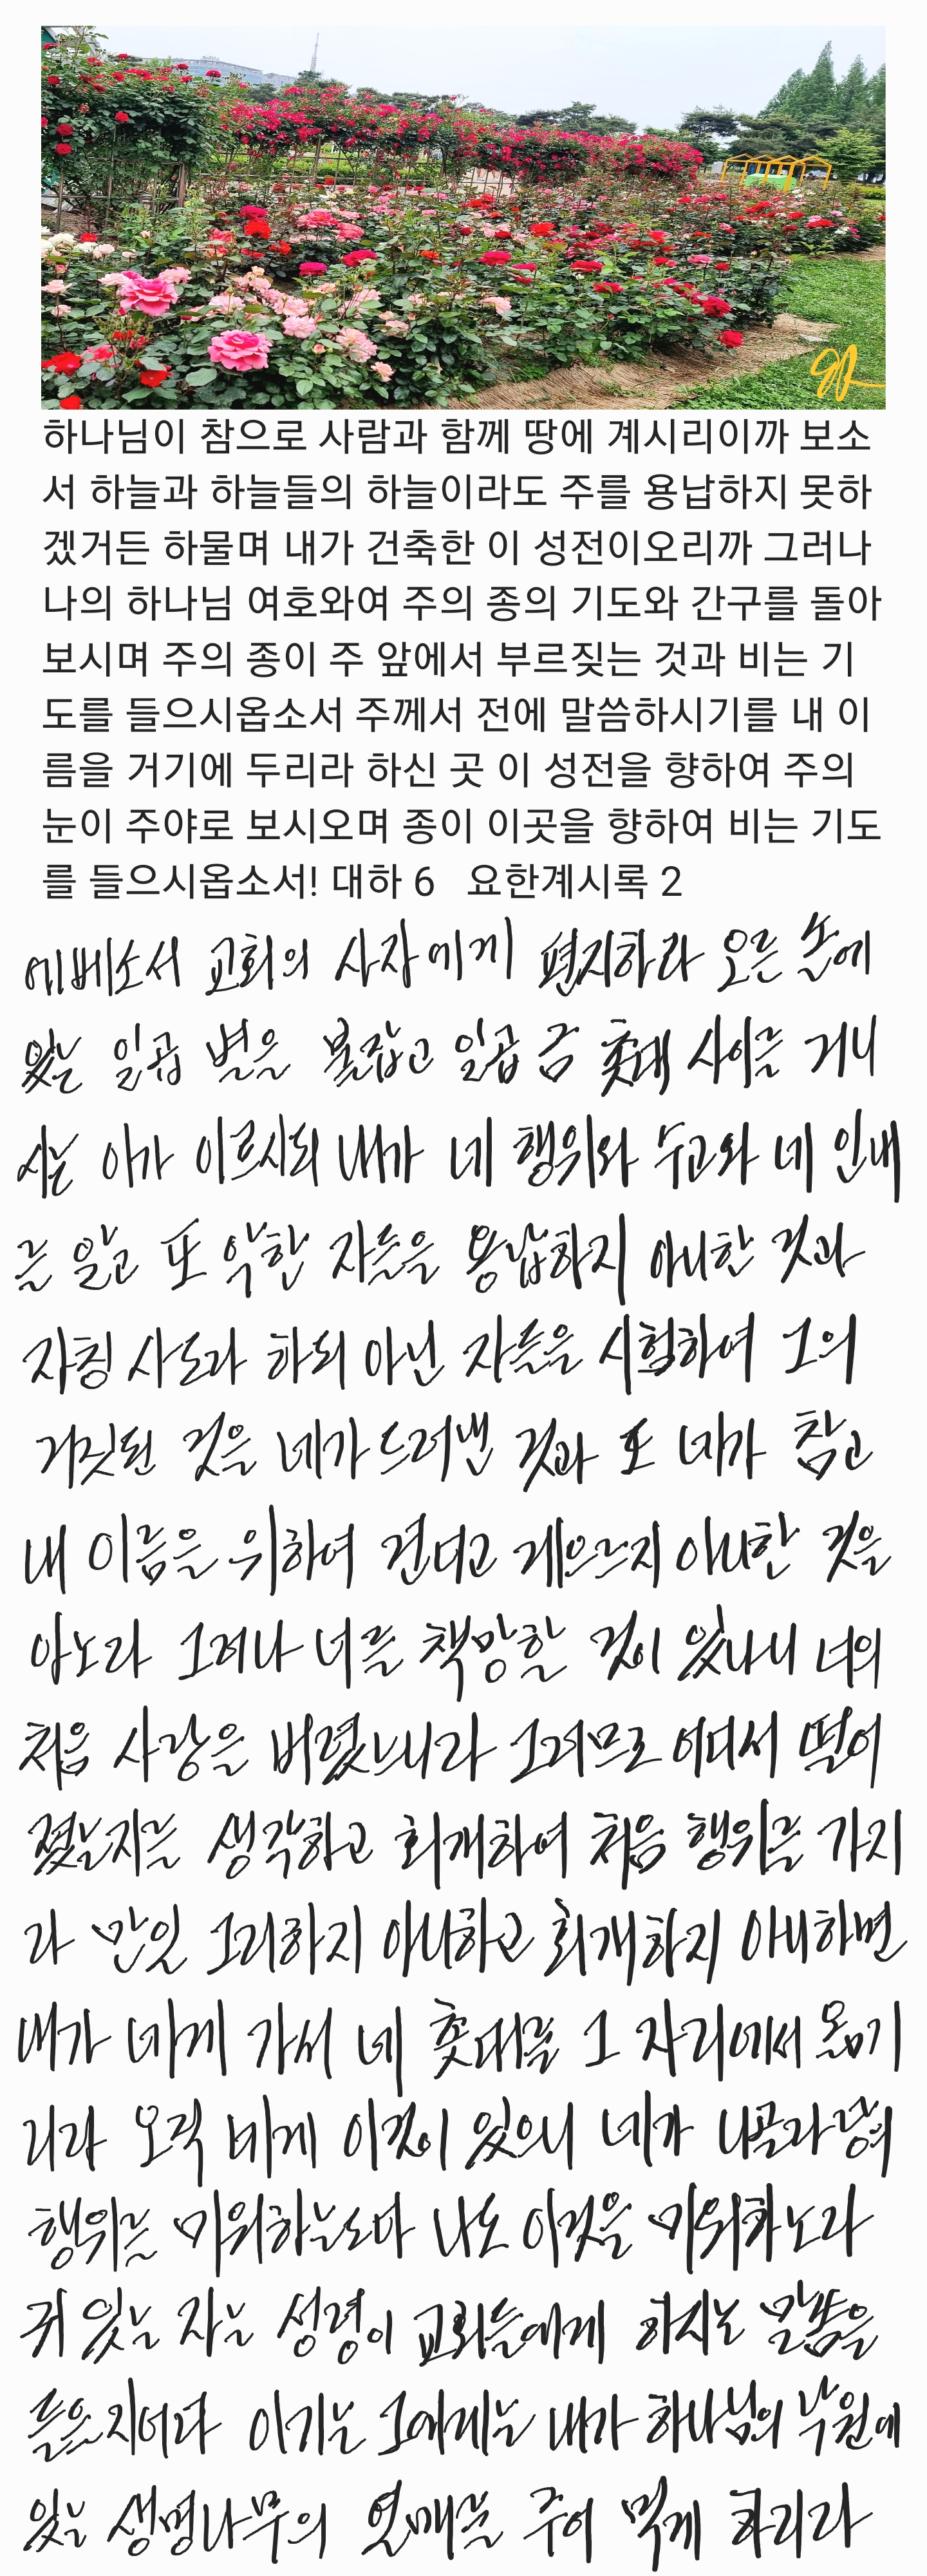 하나님이 참으로 사람과 함께 땅에 계시리이까 보소
서 하늘과 하늘들의 하늘이라도 주를 용납하지 못하
겠거든 하물며 내가 건축한 이 성전이오리까 그러나
나의 하나님 여호와여 주의 종의 기도와 간구를 돌아
보시며 주의 종이 주 앞에서 부르짖는 것과 비는 기
도를 들으시옵소서 주께서 전에 말씀하시기를 내 이
름을 거기에 두리라 하신 곳 이 성전을 향하여 주의
눈이 주야로 보시오며 종이 이곳을 향하여 비는 기도
를 들으시옵소서! 대하 6 요한계시록 2
에베소서 교회의 사자에게 편지하라 오른 손에
있는 일곱 별을 붙잡고 일곱 금 촛대 사이를 거니
시는 이가 이르시되 내가 네 행위와 수고와 네 인내
를 알고 또 악한 자들을 용납하지 아니한 것과
자칭 사도라 하되 아닌 자들을 시험하여 그의
거짓된 것을 네가 드러낸 것과 또 네가 참고
내 이름을 위하여 견디고 게으르지 아니한 것을
아노라 그러나 너를 책망할 것이 있나니 너의
처음 사랑을 버렸느니라 그러므로 어디서 떨어
졌는지를 생각하고 회개하여 처음 행위를 가지
라 만일 그리하지 아니하고 회개하지 아니하면
내가 네게 가서 네 촛대를 그 자리에서 옮기
리라 오직 네게 이것이 있으니 네가 니골라당의
행위를 미워하는도다 나도 이것을 미워하노라
귀 있는 자는 성령이 교회들에게 하시는 말씀을
들을지어다 이기는 그에게는 내가 하나님의 낙원에
있는 생명나무의 열매를 주어 먹게 하리라